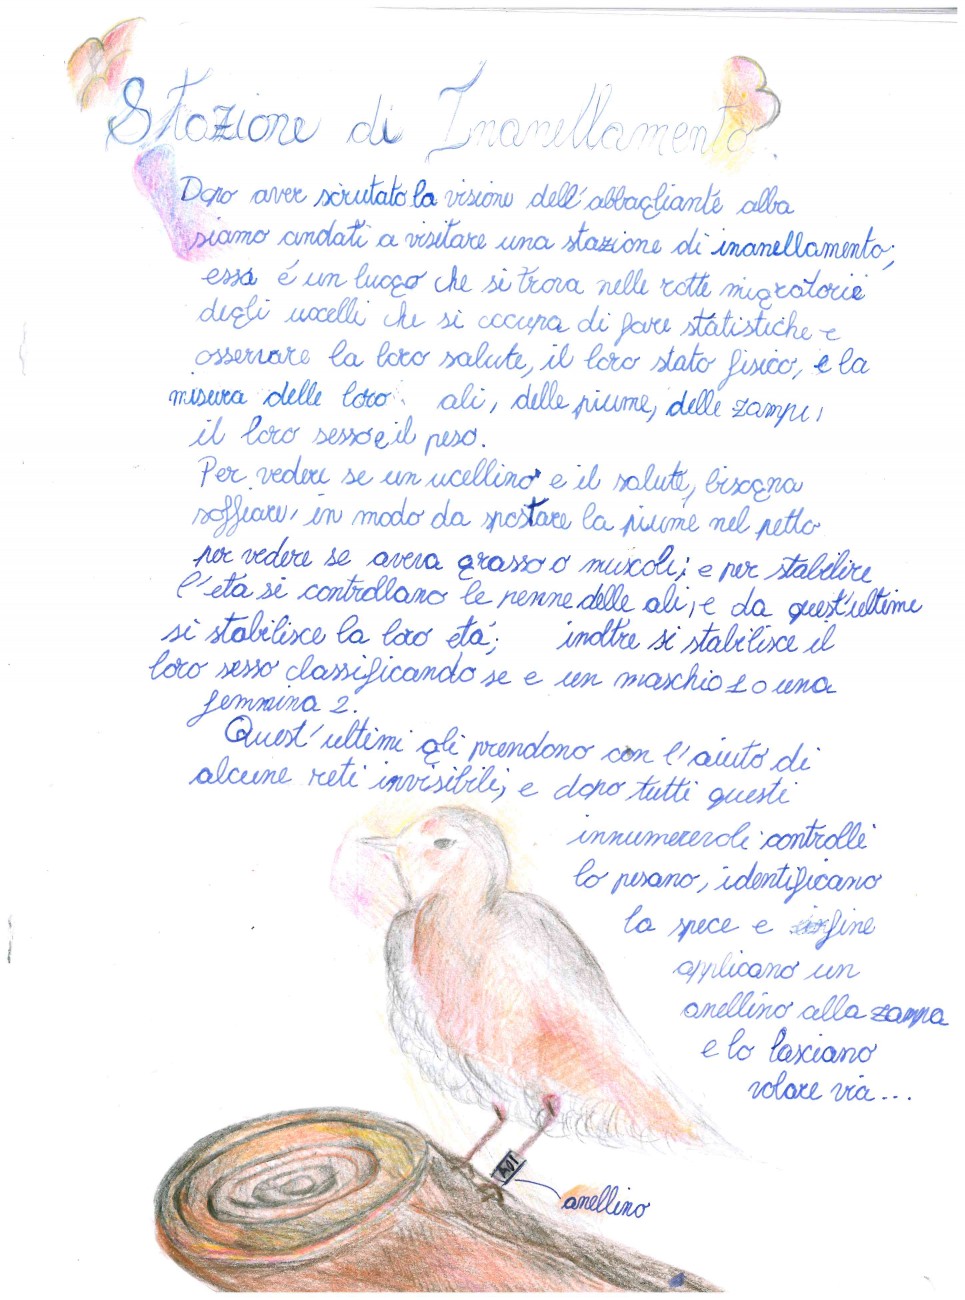 Stazione di Inanellamento.
Dopo aver scrutato la visione dell'abbagliante alba
siamo andati a visitare una stazione di inanellamento;
essa é un luogo che si trova nelle rotte migratorie
degli uccelli che si occupa di fare statistiche e
osservare la loro salute, il loro stato fisico, e la
misura delle loro ali, delle piume, delle zampe,
il loro sesso e il peso.
Per vedere se un ucellino e il salute, bisogna
soffiare, in modo da spostare la piume nel petto
per vedere se aveva grasso o muscoli; e per stabilire
l'etá si controllano le penne delle ali, e da quest'ultime
si stabilisce la loro etá; inoltre si stabilisce il
loro sesso classificando se e un maschio 1 o una
femmina 2.
Quest'ultimi gli prendono con l'aiuto di
alcune reti invisibili, e dopo tutti questi
innumerevoli controlli
lo pesano, identificano
la spece e infine
applicano un
anellino alla zampa
e lo lasciano
volare via...
anellino